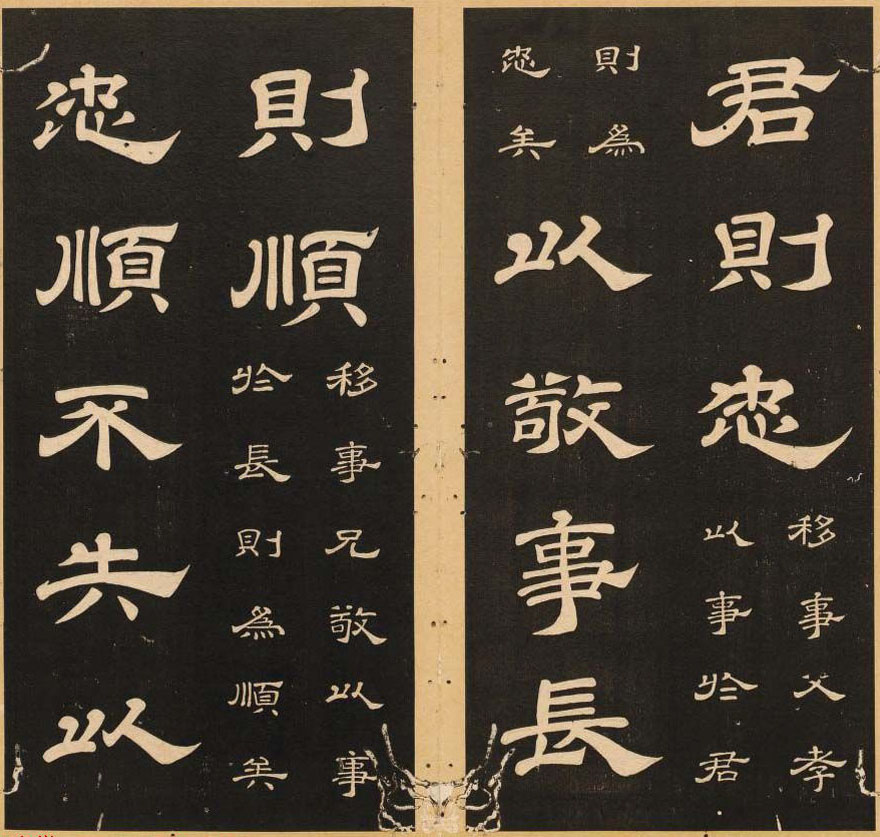 君則忠
移事父孝
以事於君
則爲
忠矣
以敬事長
則順
移事兄敬以事
於長則爲順矣
忠順不失以